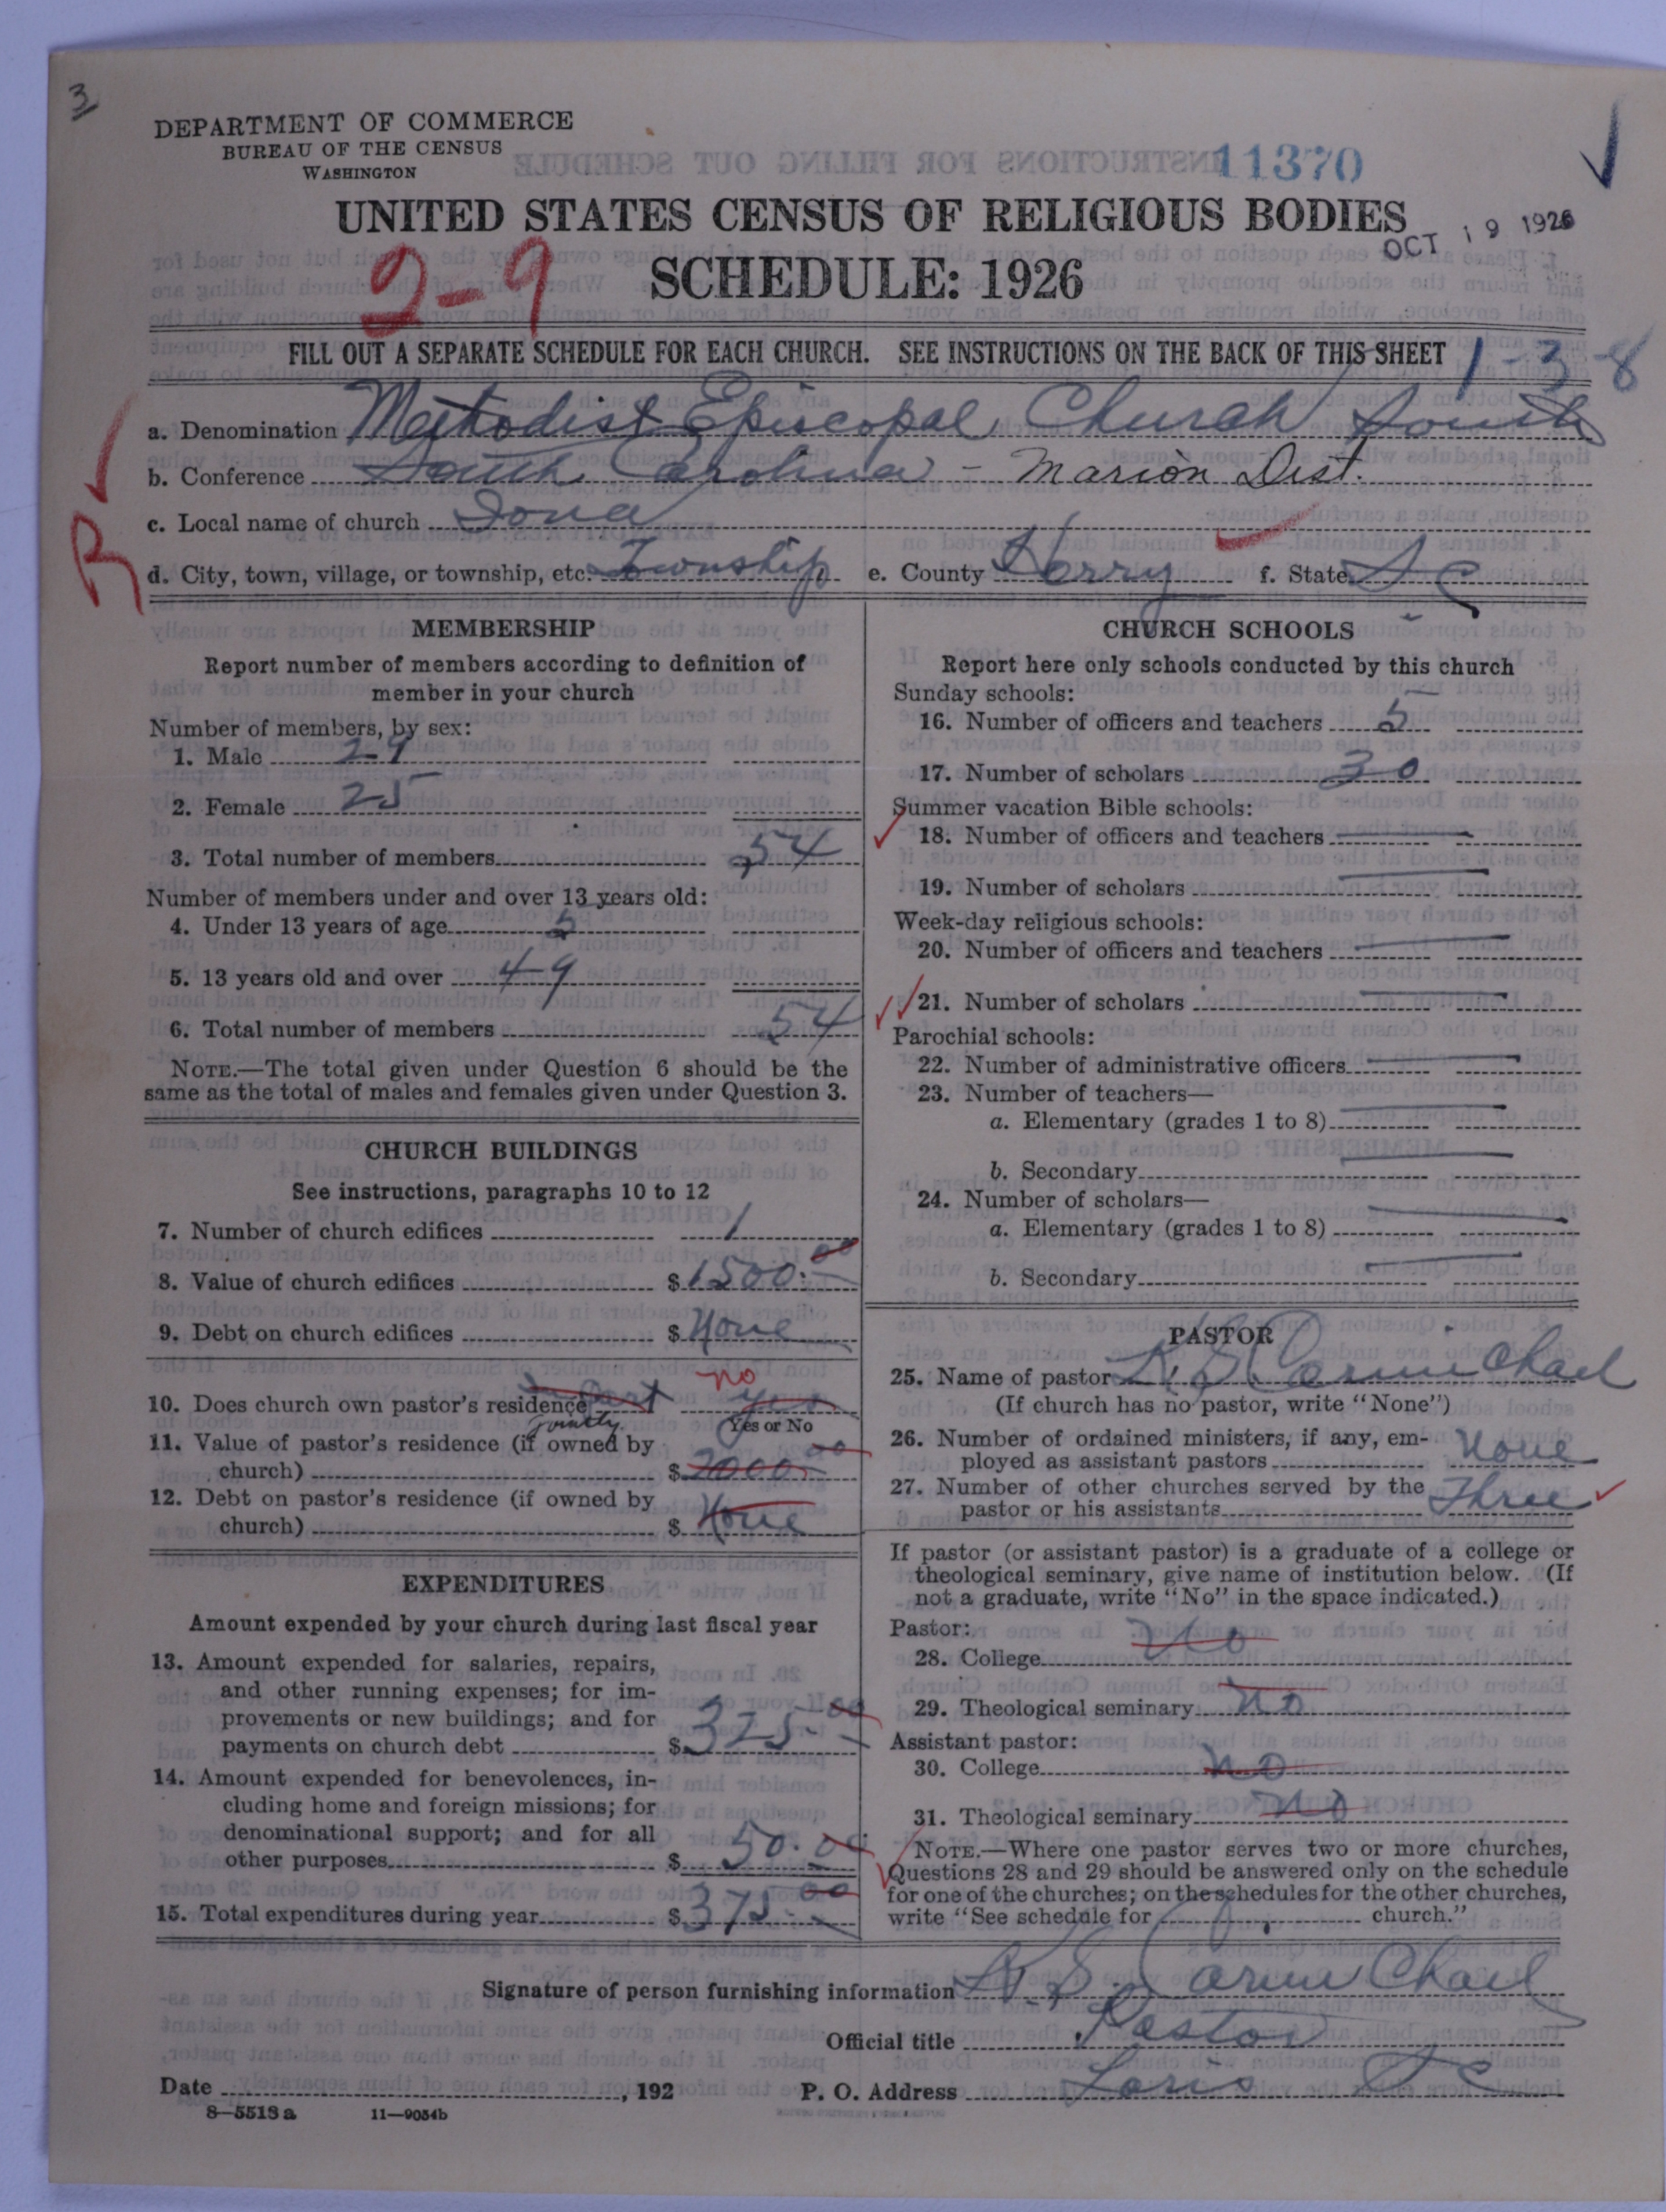 3
DEPARTMENT OF COMMERCE
BUREAU OF THE CENSUS
WASHINGTON
11370
UNITED STATES CENSUS OF RELIGIOUS BODIES
OCT 19 1926
2-9
SCHEDULE: 1926
FILL OUT A SEPARATE SCHEDULE FOR EACH CHURCH. SEE INSTRUCTIONS ON THE BACK OF THIS SHEET
1-3-8
R
a. Denomination Methodist Episcopal Church South
b. Conference South Carolina - Marion Dist.
c. Local name of church Iona
d. City, town, village, or township, etc. Township e. County Horry f. State S C
MEMBERSHIP
Report number of members according to definition of
member in your church
Number of members, by sex:
1. Male 29
2. Female 25
3. Total number of members 54
Number of members under and over 13 years old:
4. Under 13 years of age 5
5. 13 years old and over 49
6. Total number of members 54
NOTE.—The total given under Question 6 should be the
same as the total of males and females given under Question 3.
CHURCH BUILDINGS
See instructions, paragraphs 10 to 12
7. Number of church edifices 1
8. Value of church edifices $1500.00
9. Debt on church edifices $ None
10. Does church own pastor's residence in part no yes
Yes or No
jointly
11. Value of pastor's residence (if owned by
church) $ 2000.00
12. Debt on pastor's residence (if owned by
church) $ None
EXPENDITURES
Amount expended by your church during last fiscal year
13. Amount expended for salaries, repairs,
and other running expenses; for im-
provements or new buildings; and for
payments on church debt $ 325.00
14. Amount expended for benevolences, in-
cluding home and foreign missions; for
denominational support; and for all
other purposes $ 50.00
15. Total expenditures during year $ 375.00
CHURCH SCHOOLS
Report here only schools conducted by this church
Sunday schools:
16. Number of officers and teachers 5
17. Number of scholars 30
Summer vacation Bible schools:
18. Number of officers and teachers
19. Number of scholars
Week-day religious schools:
20. Number of officers and teachers
21. Number of scholars
Parochial schools:
22. Number of administrative officers
23. Number of teachers—
a. Elementary (grades 1 to 8)
b. Secondary
24. Number of scholars—
a. Elementary (grades 1 to 8)
b. Secondary
PASTOR
25. Name of pastor Carmichael
(If church has no pastor, write "None")
26. Number of ordained ministers, if any, em-
ployed as assistant pastors None
27. Number of other churches served by the
pastor or his assistants Three
If pastor (or assistant pastor) is a graduate of a college or
theological seminary, give name of institution below. (If
not a graduate, write "No" in the space indicated.)
Pastor:
28. College No
29. Theological seminary No
Assistant pastor:
30. College No
31. Theological seminary No
NOTE.—Where one pastor serves two or more churches,
Questions 28 and 29 should be answered only on the schedule
for one of the churches; on the schedules for the other churches,
write "See schedule for church."
Signature of person furnishing information Carmichael
Official title Pastor
Date , 192 P. O. Address Loris S C
8—5513 a 11—9054b